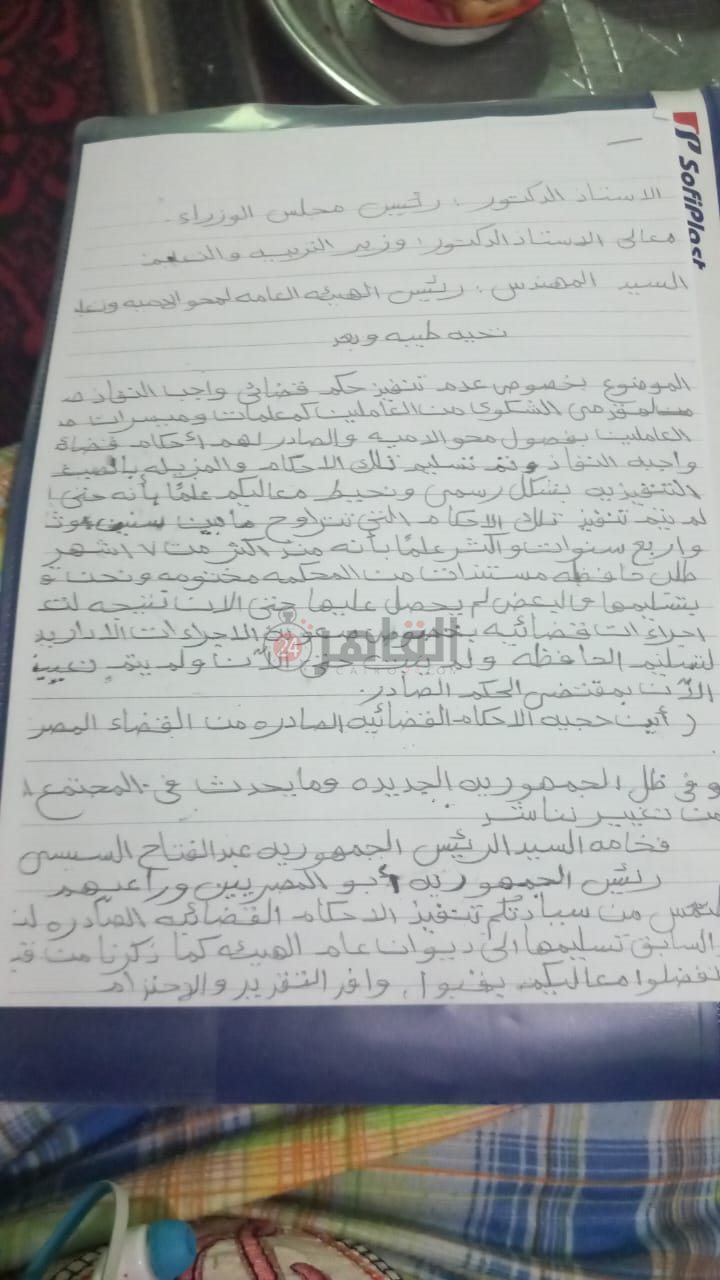 SofiPlast
الاستاذ الدكتور: رئيس مجلس الوزراء.
معالى الاستاذ الدكتور: وزير التربيه والتعليم
السيد المهندس: رئيس الهيئه العامه لمحو الاميه وتعل
تحيه طيبه وبعد
الموضوع بخصوص عدم تنفيذ حكم قضائى واجب النفاذ
مقدمى الشكوى من العاملين كمعلمات وميسرات
العاملين بفصول محو الاميه والصادر لهم أحكام قضائ
واجبه النفاذ وتم تسليم تلك الاحكام والمزيله بالصيغ
التنفيزيه بشكل رسمى ونحيط معاليكم علمًا بأنه حتى ا
لم يتم تنفيذ تلك الاحكام التى تتراوح مابين سنين
واربع سنوات واكثر علمًا بأنه منذ اكثر من ٧ اشهر
طلب حافظه مستندات من المحكمه مختومه ونحن ق
بتسليمها والبعض لم يحصل عليها حتى الان نتيجه لتع
اجراءات قضائيه بخصوص الاجراءات الاداريه
لتسليم الحافظه ولم حتى الآن ولم يتم تعيين
الآن بمقتضى الحكم الصادر.
( أين حجيه الاحكام القضائيه الصادره من القضاء المصر
وفى ظل الجمهوريه الجديده ومايحدث فى المجتمع ا
من تغيير نناشد
فخامه السيد الرئيس الجمهوريه عبدالفتاح السيسى
رئيس الجمهوريه أبو المصريين وراعيهم
نلتمس من سيادتكم تنفيذ الاحكام القضائيه الصادره لن
والسابق تسليمها الى ديوان عام الهيئه كما ذكرنا من ق
تفضلوا معاليكم بقبول وافر التقدير والإحترام
القاهرة 24
CAIRO24.COM